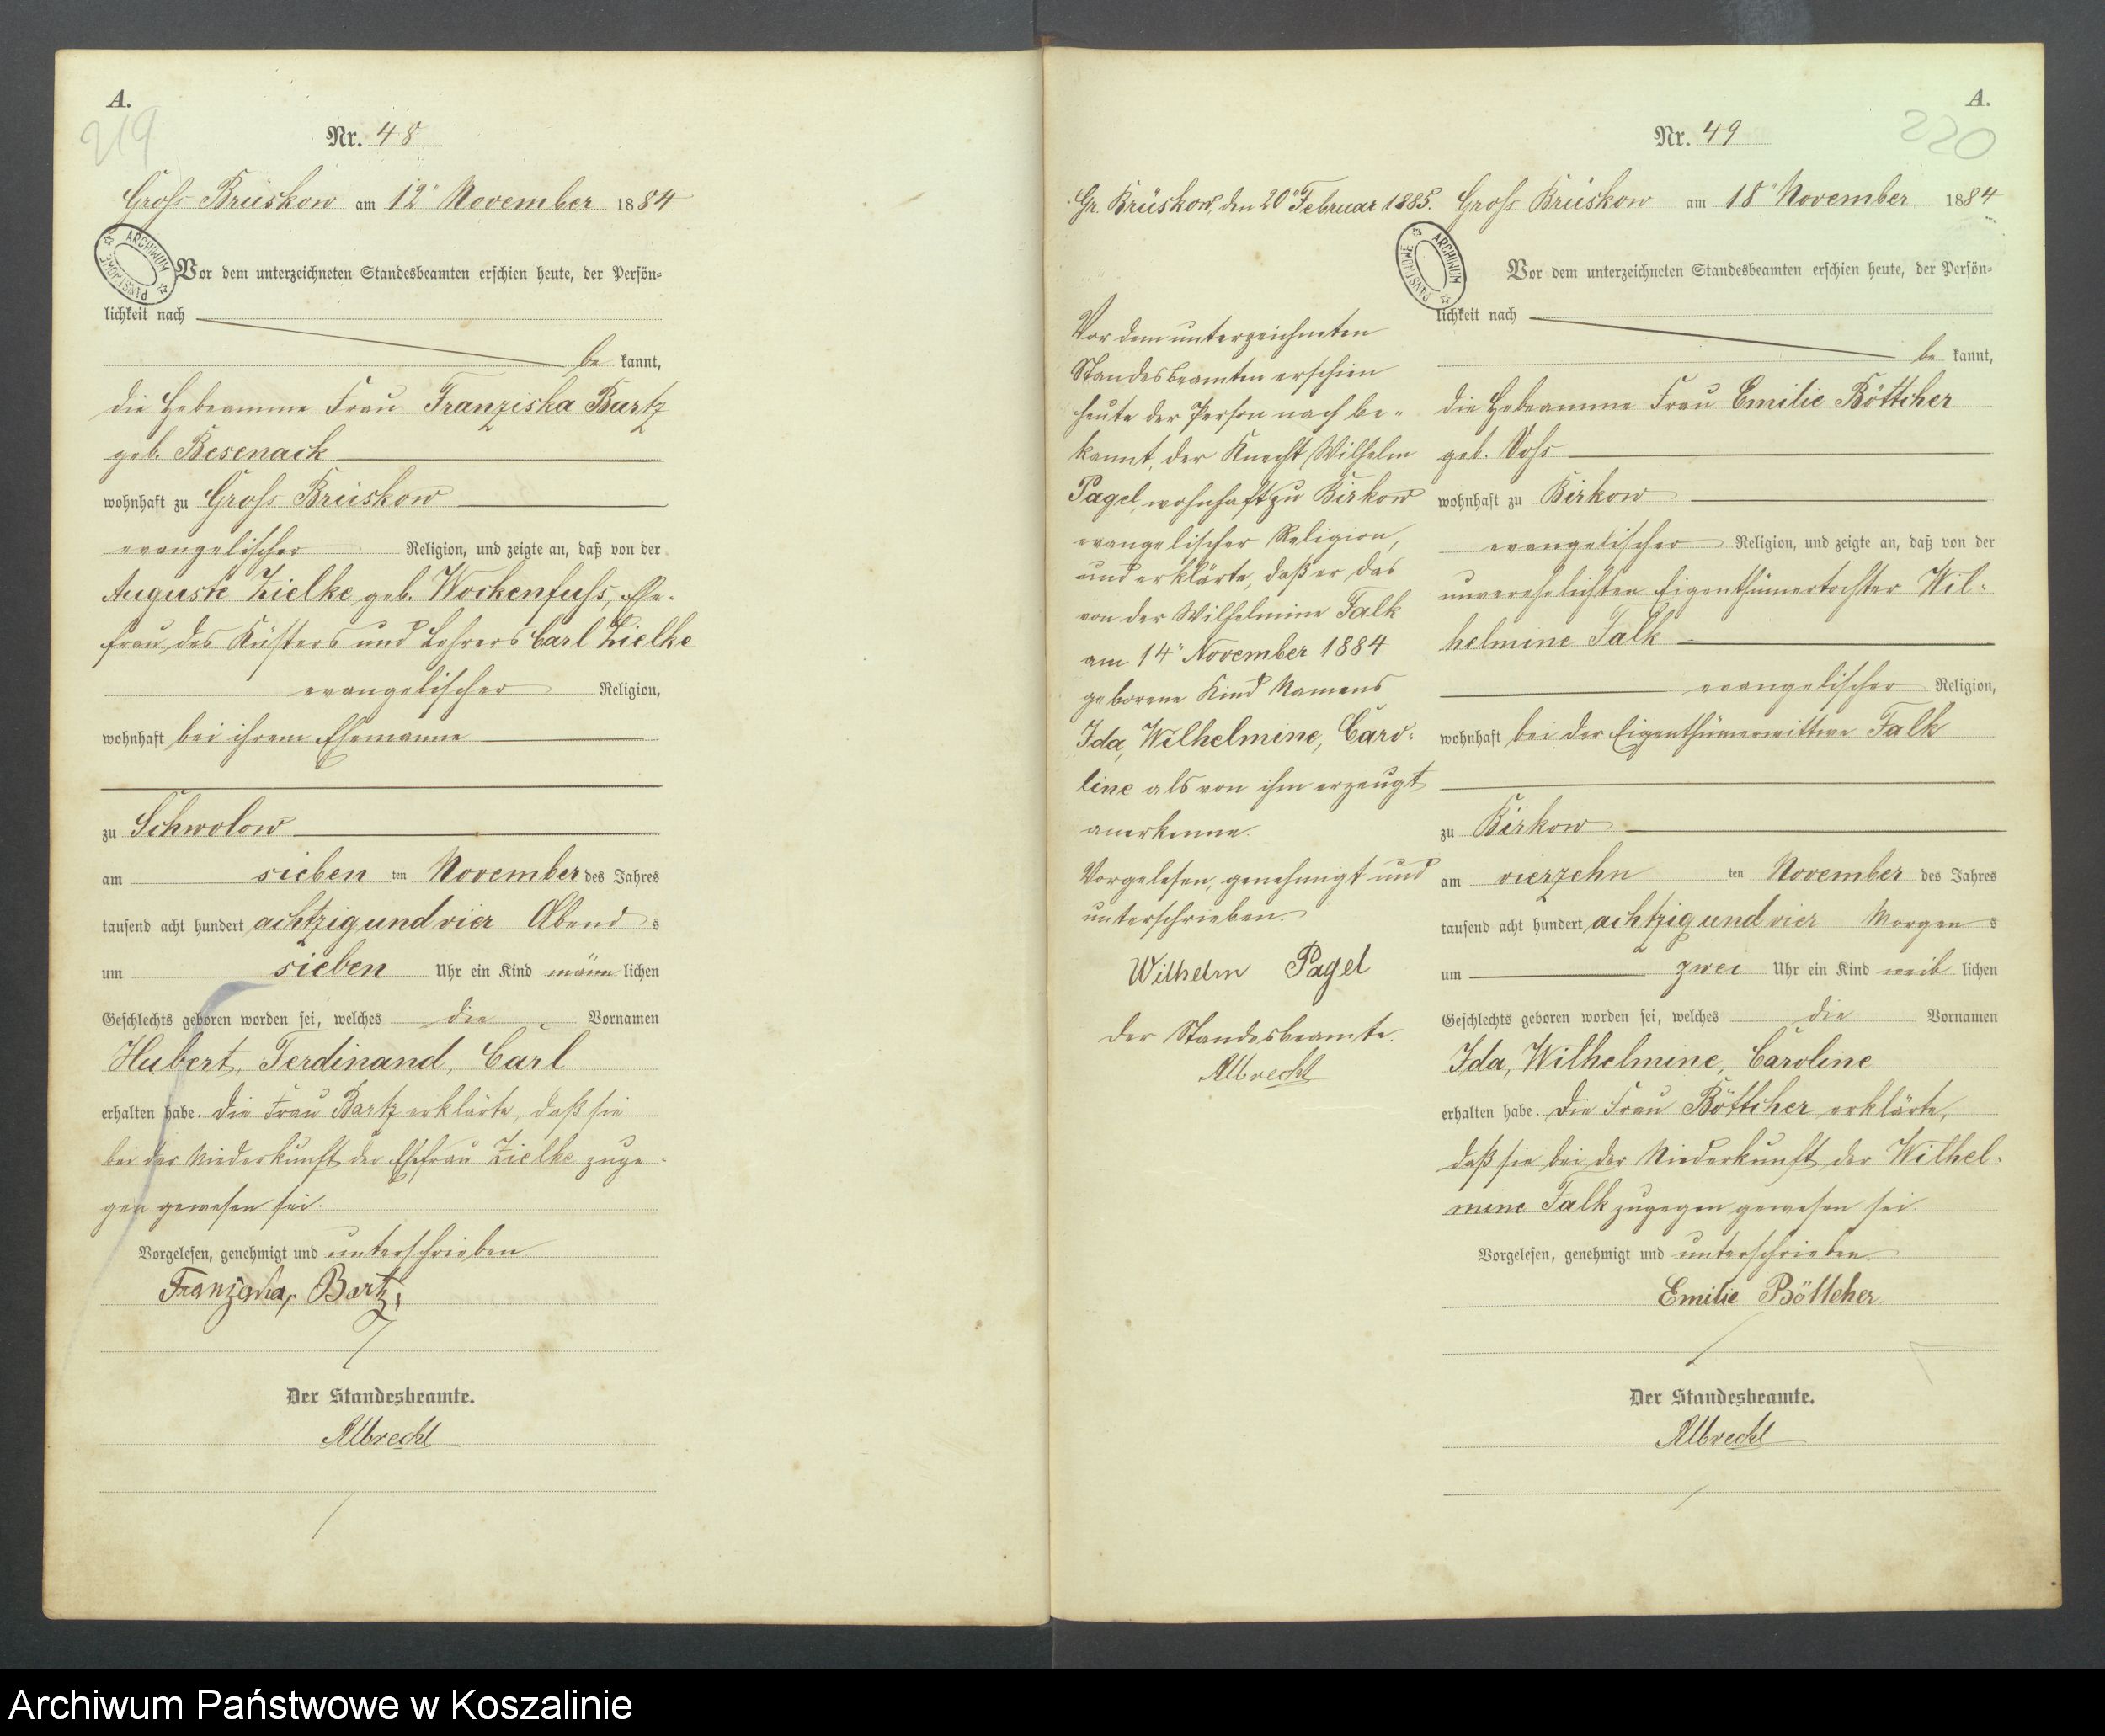 A.
219
Nr. 48.
Groß Brüskow am 12" November 1884
ARCHIWUM PAŃSTWOWE
Vor dem unterzeichneten Standesbeamten erschien heute, der Persön-
lichkeit nach
be kannt,
die Hebeamme Frau Franziska Bartz
geb. Besenack
wohnhaft zu Groß Brüskow
evangelischer Religion, und zeigte an, daß von der
Auguste Zielke geb. Wockenfuß, Ehe-
frau des Küsters und Lehrers Carl Zielke
evangelischer Religion,
wohnhaft bei ihrem Ehemanne
zu Schwolow
am sieben ten November des Jahres
tausend acht hundert achtzig und vier Abend s
um sieben Uhr ein Kind männ lichen
Geschlechts geboren worden sei, welches die Vornamen
Hubert, Ferdinand, Carl
erhalten habe. Die Frau Bartz erklärte, daß sie
bei der Niederkunft der Ehefrau Zielke zuge-
gen gewesen sei.
Vorgelesen, genehmigt und unterschrieben
Franziska, Bartz,
Der Standesbeamte.
Albrecht
A.
220
Nr. 49
Gr. Brüskow, den 20" Februar 1885.
Vor dem unterzeichneten
Standesbeamten erschien
heute der Person nach be-
kannt, der Knecht Wilhelm
Pagel, wohnhaft zu Birkow
evangelischer Religion,
und erklärte, daß er das
von der Wilhelmine Falk
am 14" November 1884
geborene Kind Namens
Ida, Wilhelmine, Caro-
line als von ihm erzeugt
anerkenne.
Vorgelesen, genehmigt und
unterschrieben.
Wilhelm Pagel
Der Standesbeamte.
Albrecht
Groß Brüskow am 18" November 1884
ARCHIWUM PAŃSTWOWE
Vor dem unterzeichneten Standesbeamten erschien heute, der Persön-
lichkeit nach
be kannt,
die Hebeamme Frau Emilie Böttcher
geb. Voß
wohnhaft zu Birkow
evangelischer Religion, und zeigte an, daß von der
unverehelichten Eigenthümertochter Wil-
helmine Falk
evangelischer Religion,
wohnhaft bei der Eigenthümerwittwe Falk
zu Birkow
am vierzehn ten November des Jahres
tausend acht hundert achtzig und vier Morgen s
um zwei Uhr ein Kind weib lichen
Geschlechts geboren worden sei, welches die Vornamen
Ida, Wilhelmine, Caroline
erhalten habe. Die Frau Böttcher erklärte,
daß sie bei der Niederkunft der Wilhel-
mine Falk zugegen gewesen sei.
Vorgelesen, genehmigt und unterschrieben
Emilie Böttcher.
Der Standesbeamte.
Albrecht
Archiwum Państwowe w Koszalinie